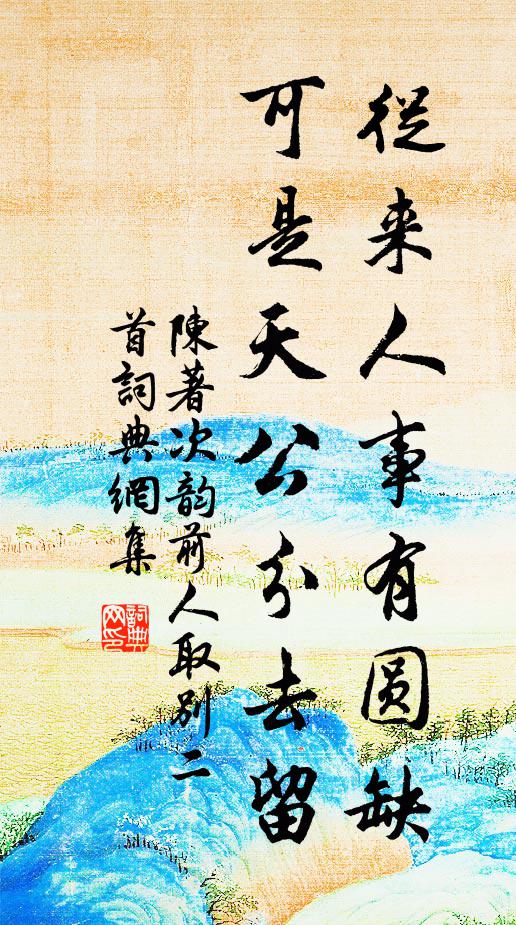 從来人事有圆缺
可是天公分去留
陳著次韵前人取别二
首詞典網集
詞典